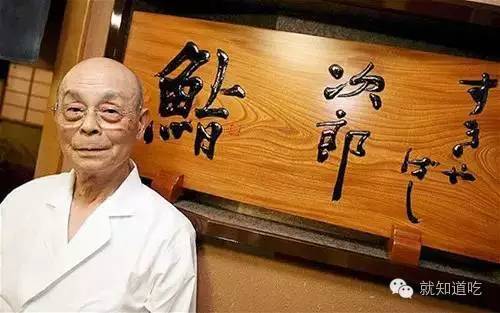 すきや
ばし
次郎
鮨
就知道吃